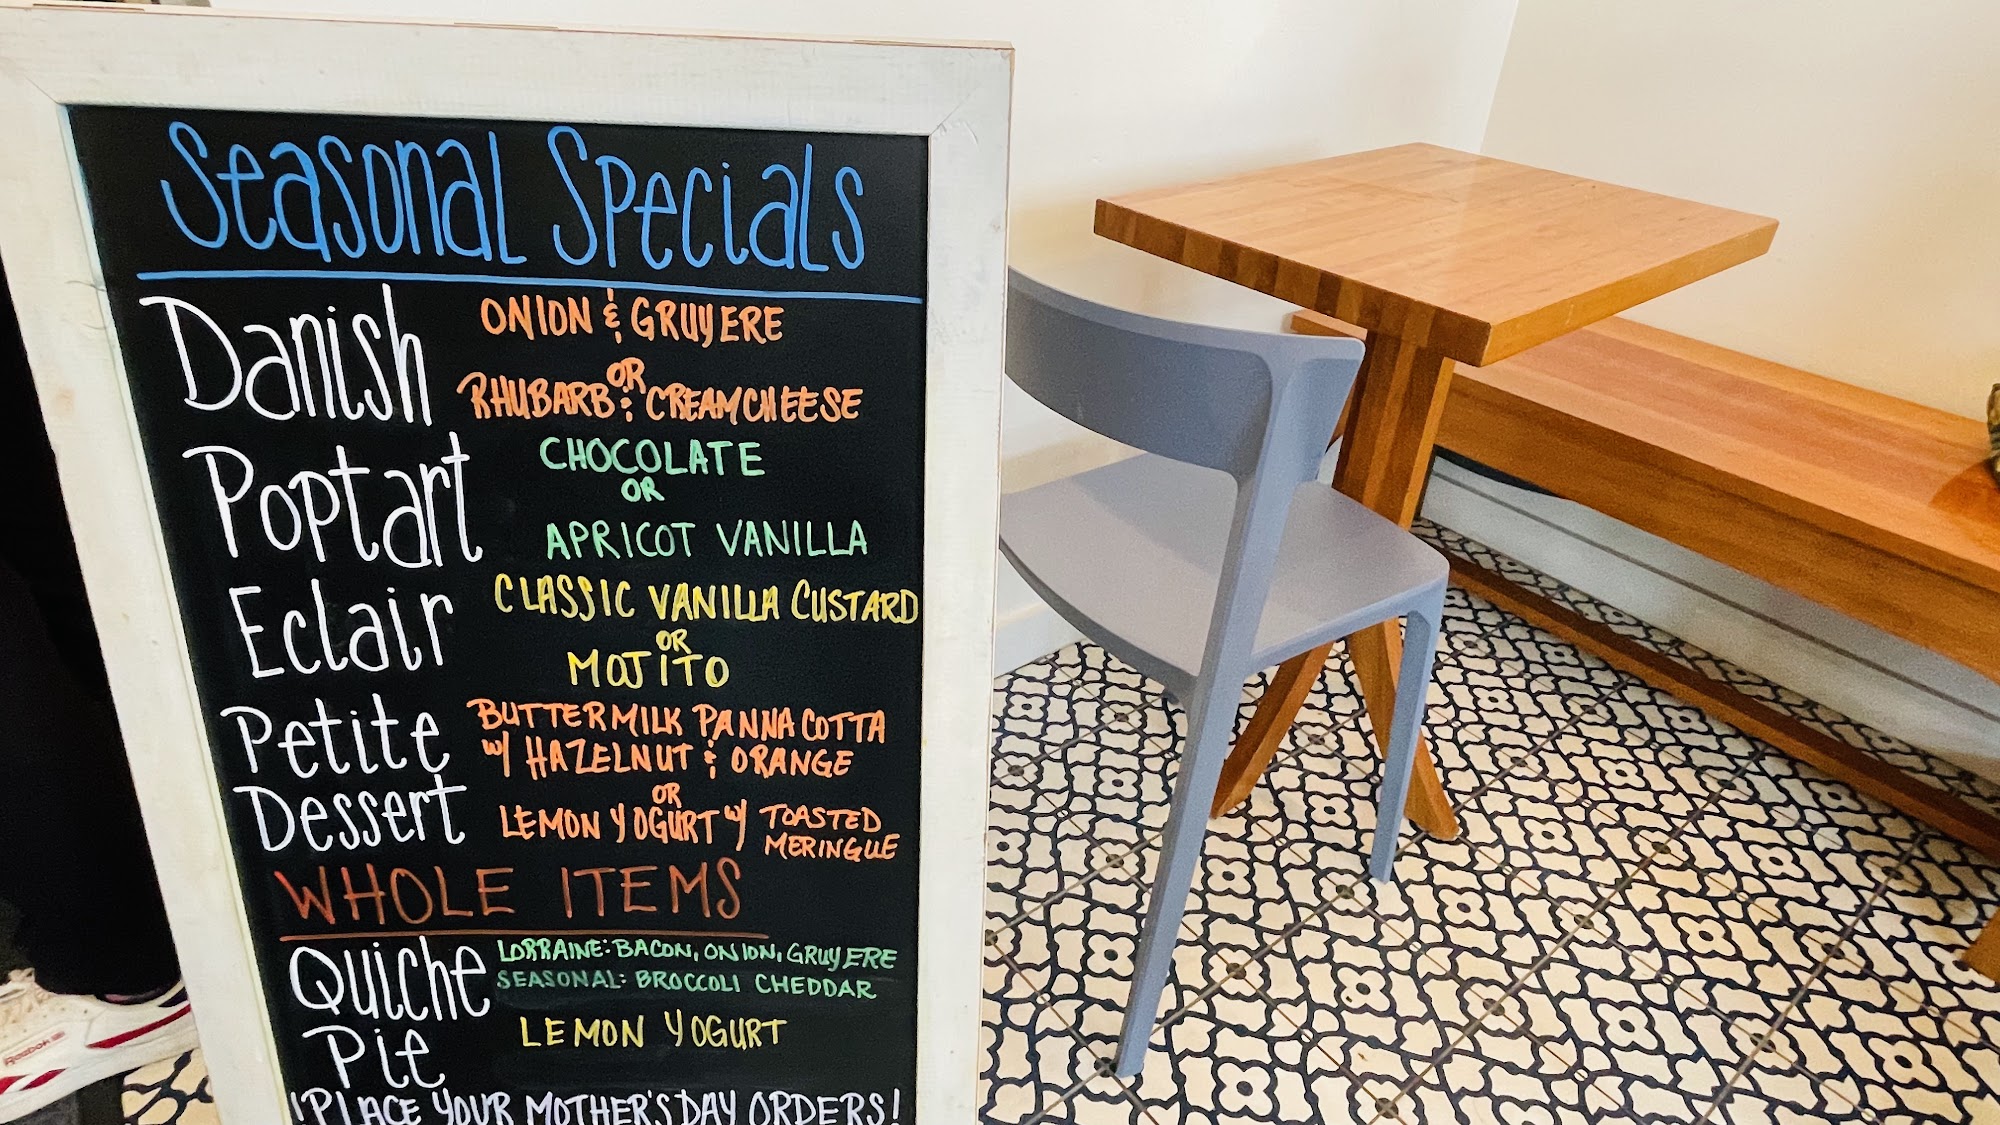 Seasonal Specials
Danish
ONION & GRUYERE
OR
RHUBARB & CREAMCHEESE
Poptart
CHOCOLATE
OR
APRICOT VANILLA
Eclair
CLASSIC VANILLA CUSTARD
OR
MOJITO
Petite
Dessert
BUTTERMILK PANNA COTTA
w/ HAZELNUT & ORANGE
OR
LEMON YOGURT w/ TOASTED
MERINGUE
WHOLE ITEMS
Quiche
LORRAINE: BACON, ONION, GRUYERE
SEASONAL: BROCCOLI CHEDDAR
Pie
LEMON YOGURT
!PLACE YOUR MOTHER'S DAY ORDERS!
Reebok